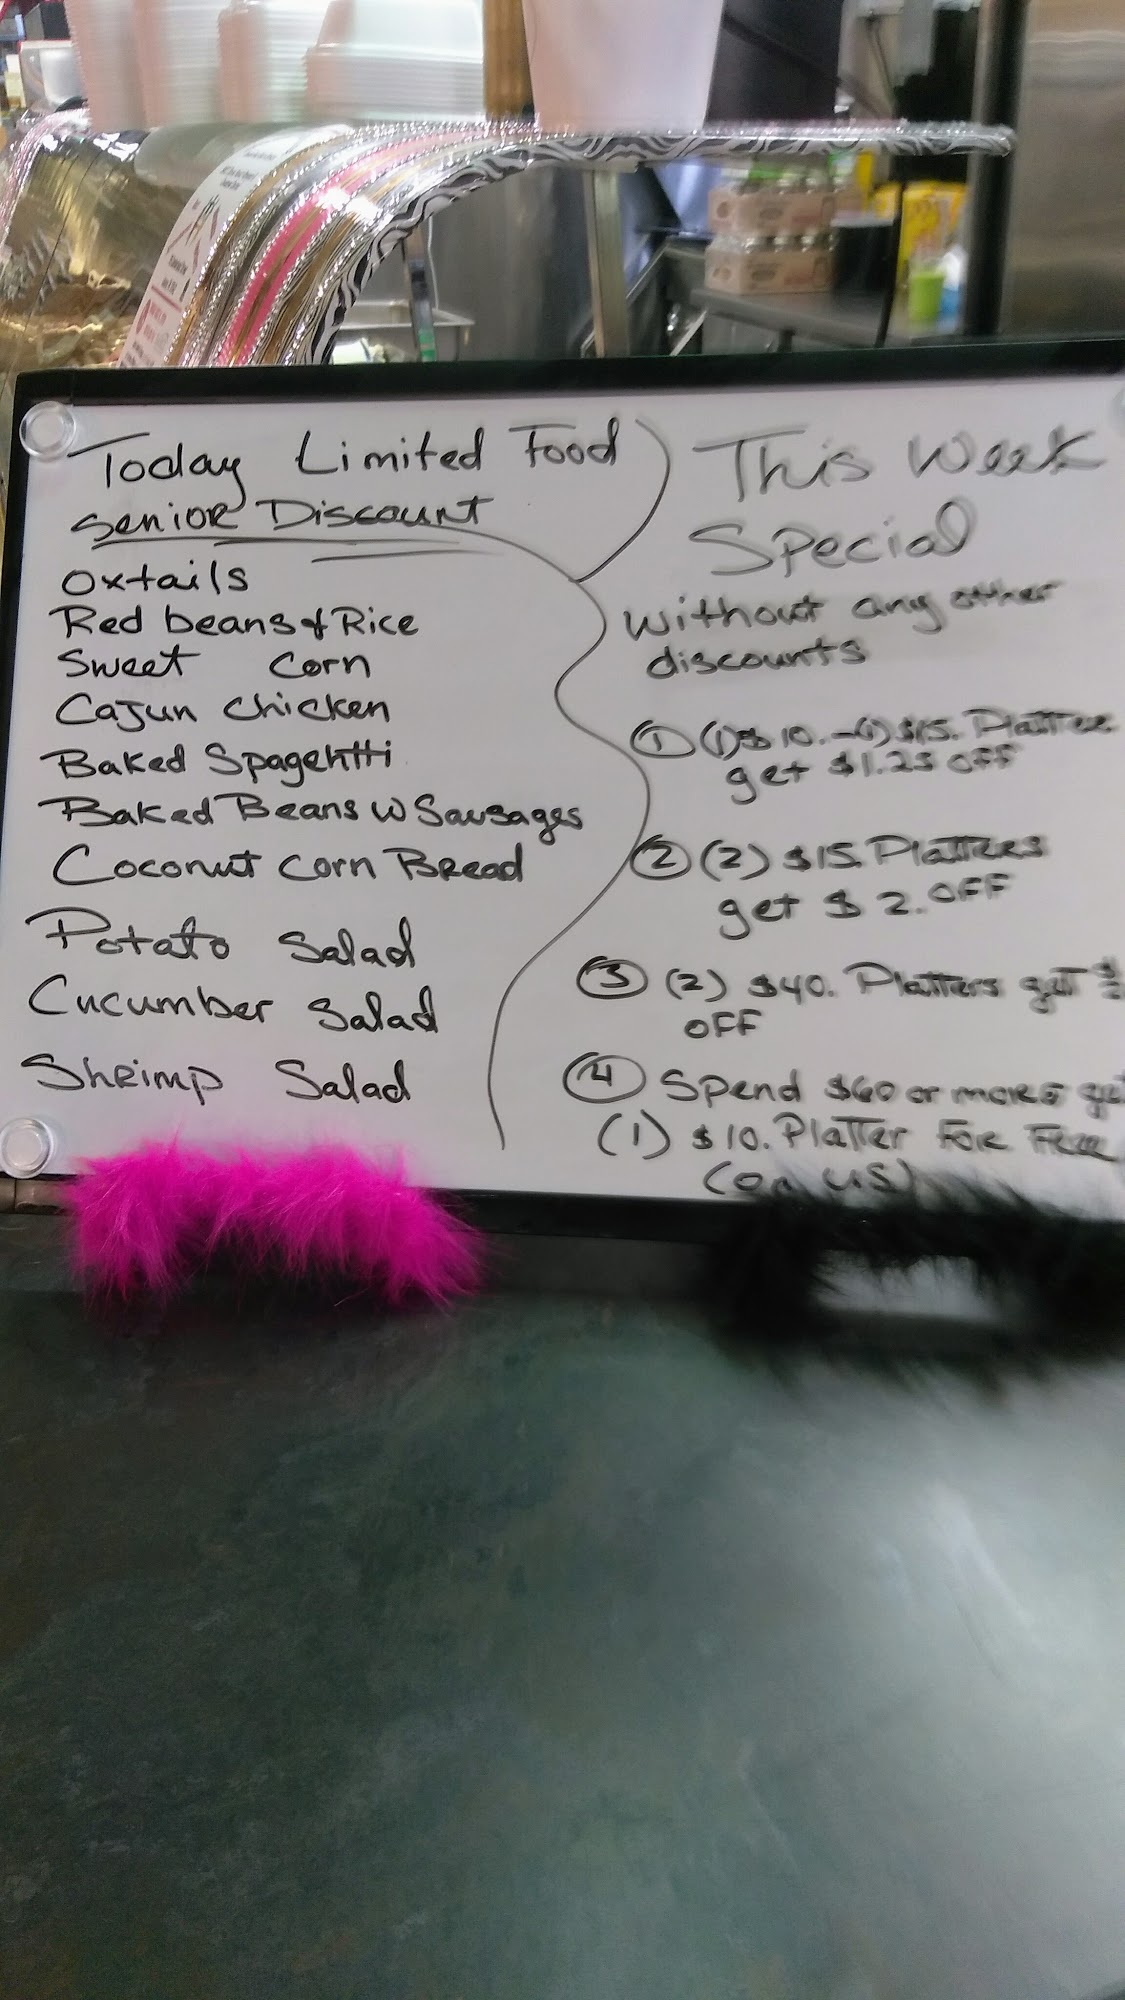 Today Limited Food
Senior Discount
Oxtails
Red beans & Rice
Sweet Corn
Cajun Chicken
Baked Spagehtti
Baked Beans w Sausages
Coconut Corn Bread
Potato Salad
Cucumber Salad
Shrimp Salad
This Week
Special
without any other
discounts
① (1) $10. - (1) $15. Platter
get $1.25 OFF
② (2) $15. Platters
get $2. OFF
③ (2) $40. Platters get $
OFF
④ Spend $60 or more
(1) $10. Platter For Free
(on us)